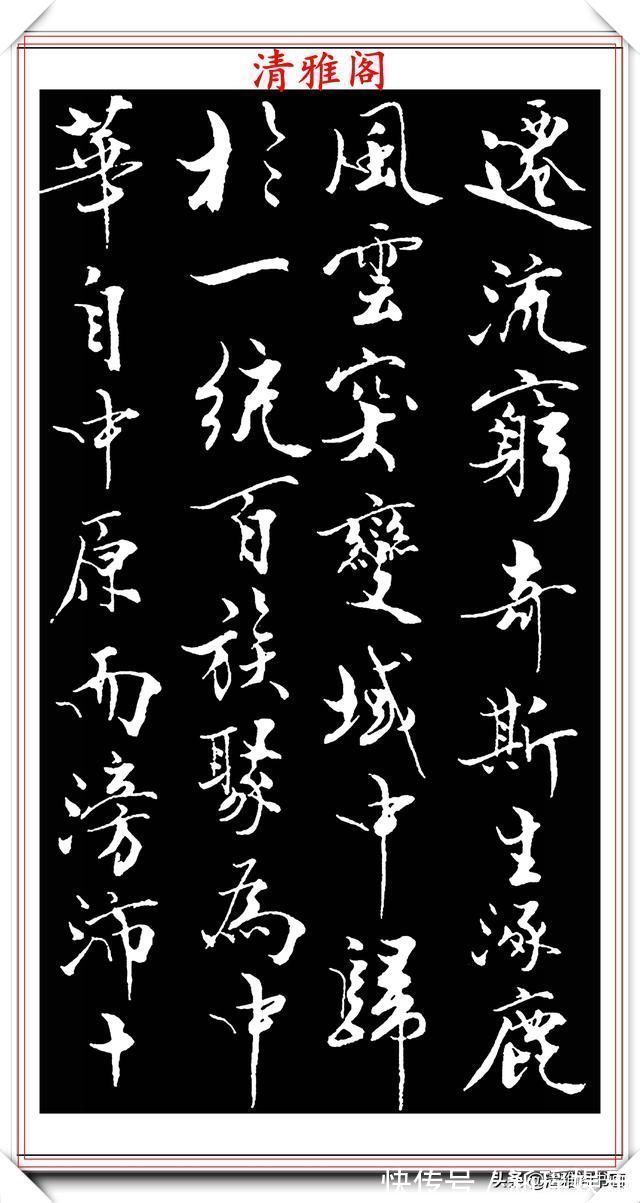 清雅阁
遷流窮奇斯生涿鹿
風雲突變域中歸
於一統百族聚為中
華自中原而滂沛十
快传号